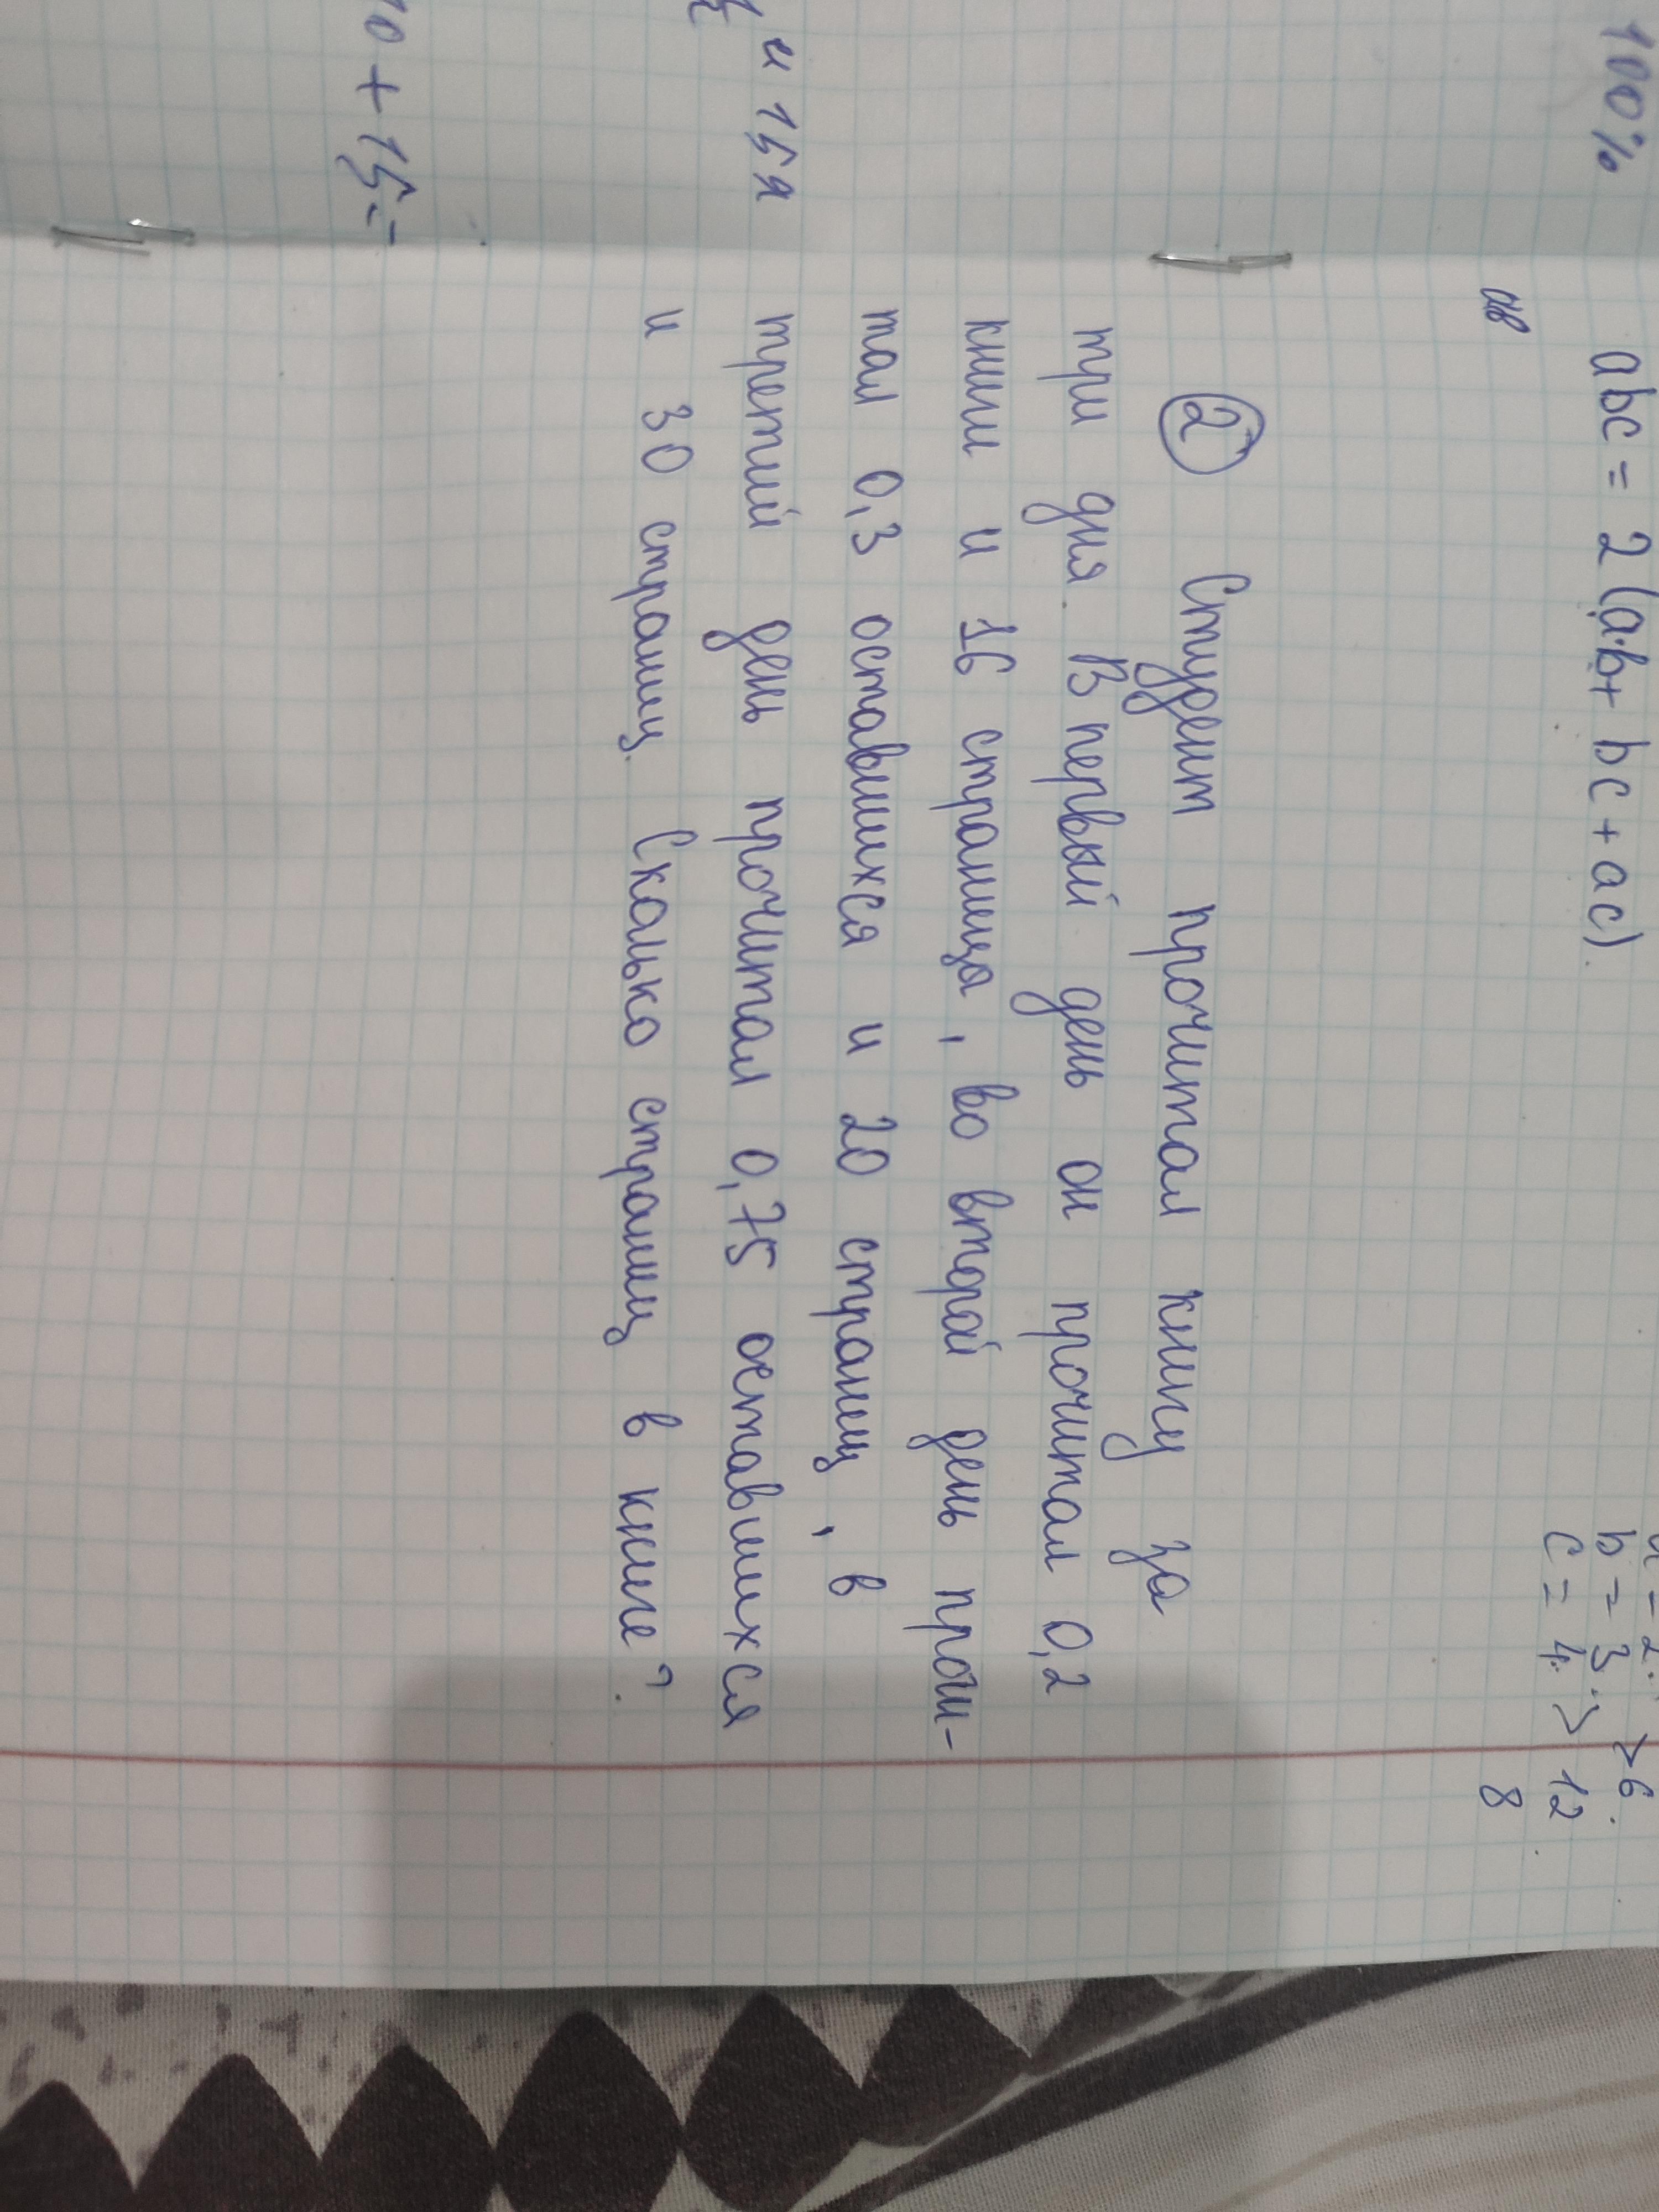 100%
и 15 я
10 + 15 =
abc = 2 (a·b + bc + ac).
ав
b = 3 > 6.
c = 4. > 12
8
② Студент прочитал книгу за
три дня. В первый день он прочитал 0,2
книги и 16 страницы, во второй день прочи-
тал 0,3 оставшихся и 20 страниц, в
третий день прочитал 0,75 оставшихся
и 30 страниц. Сколько страниц в книге?